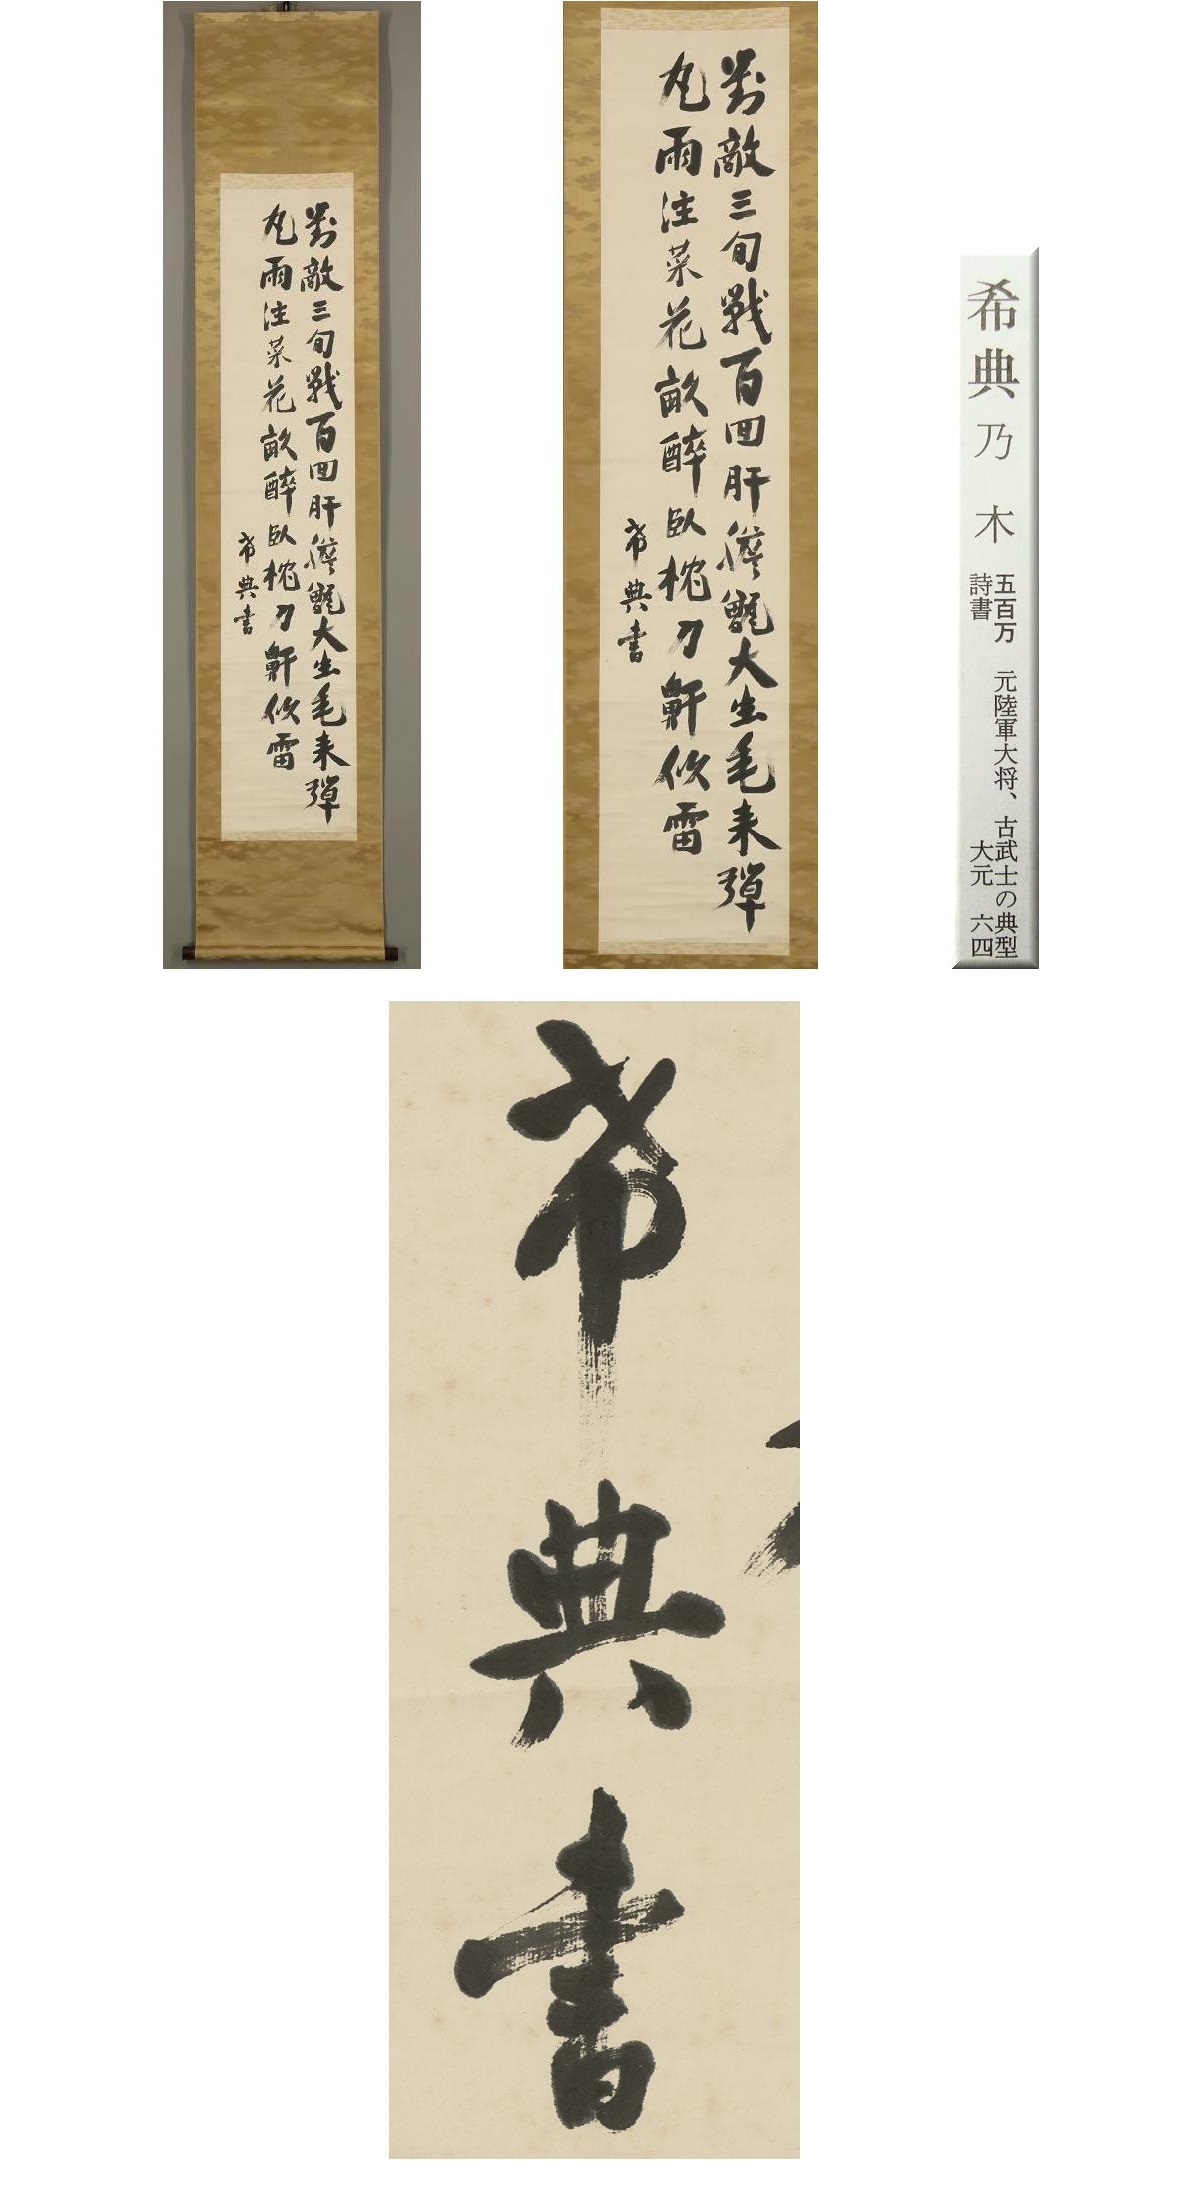 對敵三旬戰百回肝膽大生毛来彈
丸雨注菜花畝醉臥枕刀鼾似雷
希典書
對敵三旬戰百回肝膽大生毛来彈
丸雨注菜花畝醉臥枕刀鼾似雷
希典書
希典乃木
五百万 元陸軍大将、古武士の典型
詩書 大元 六四
希典書